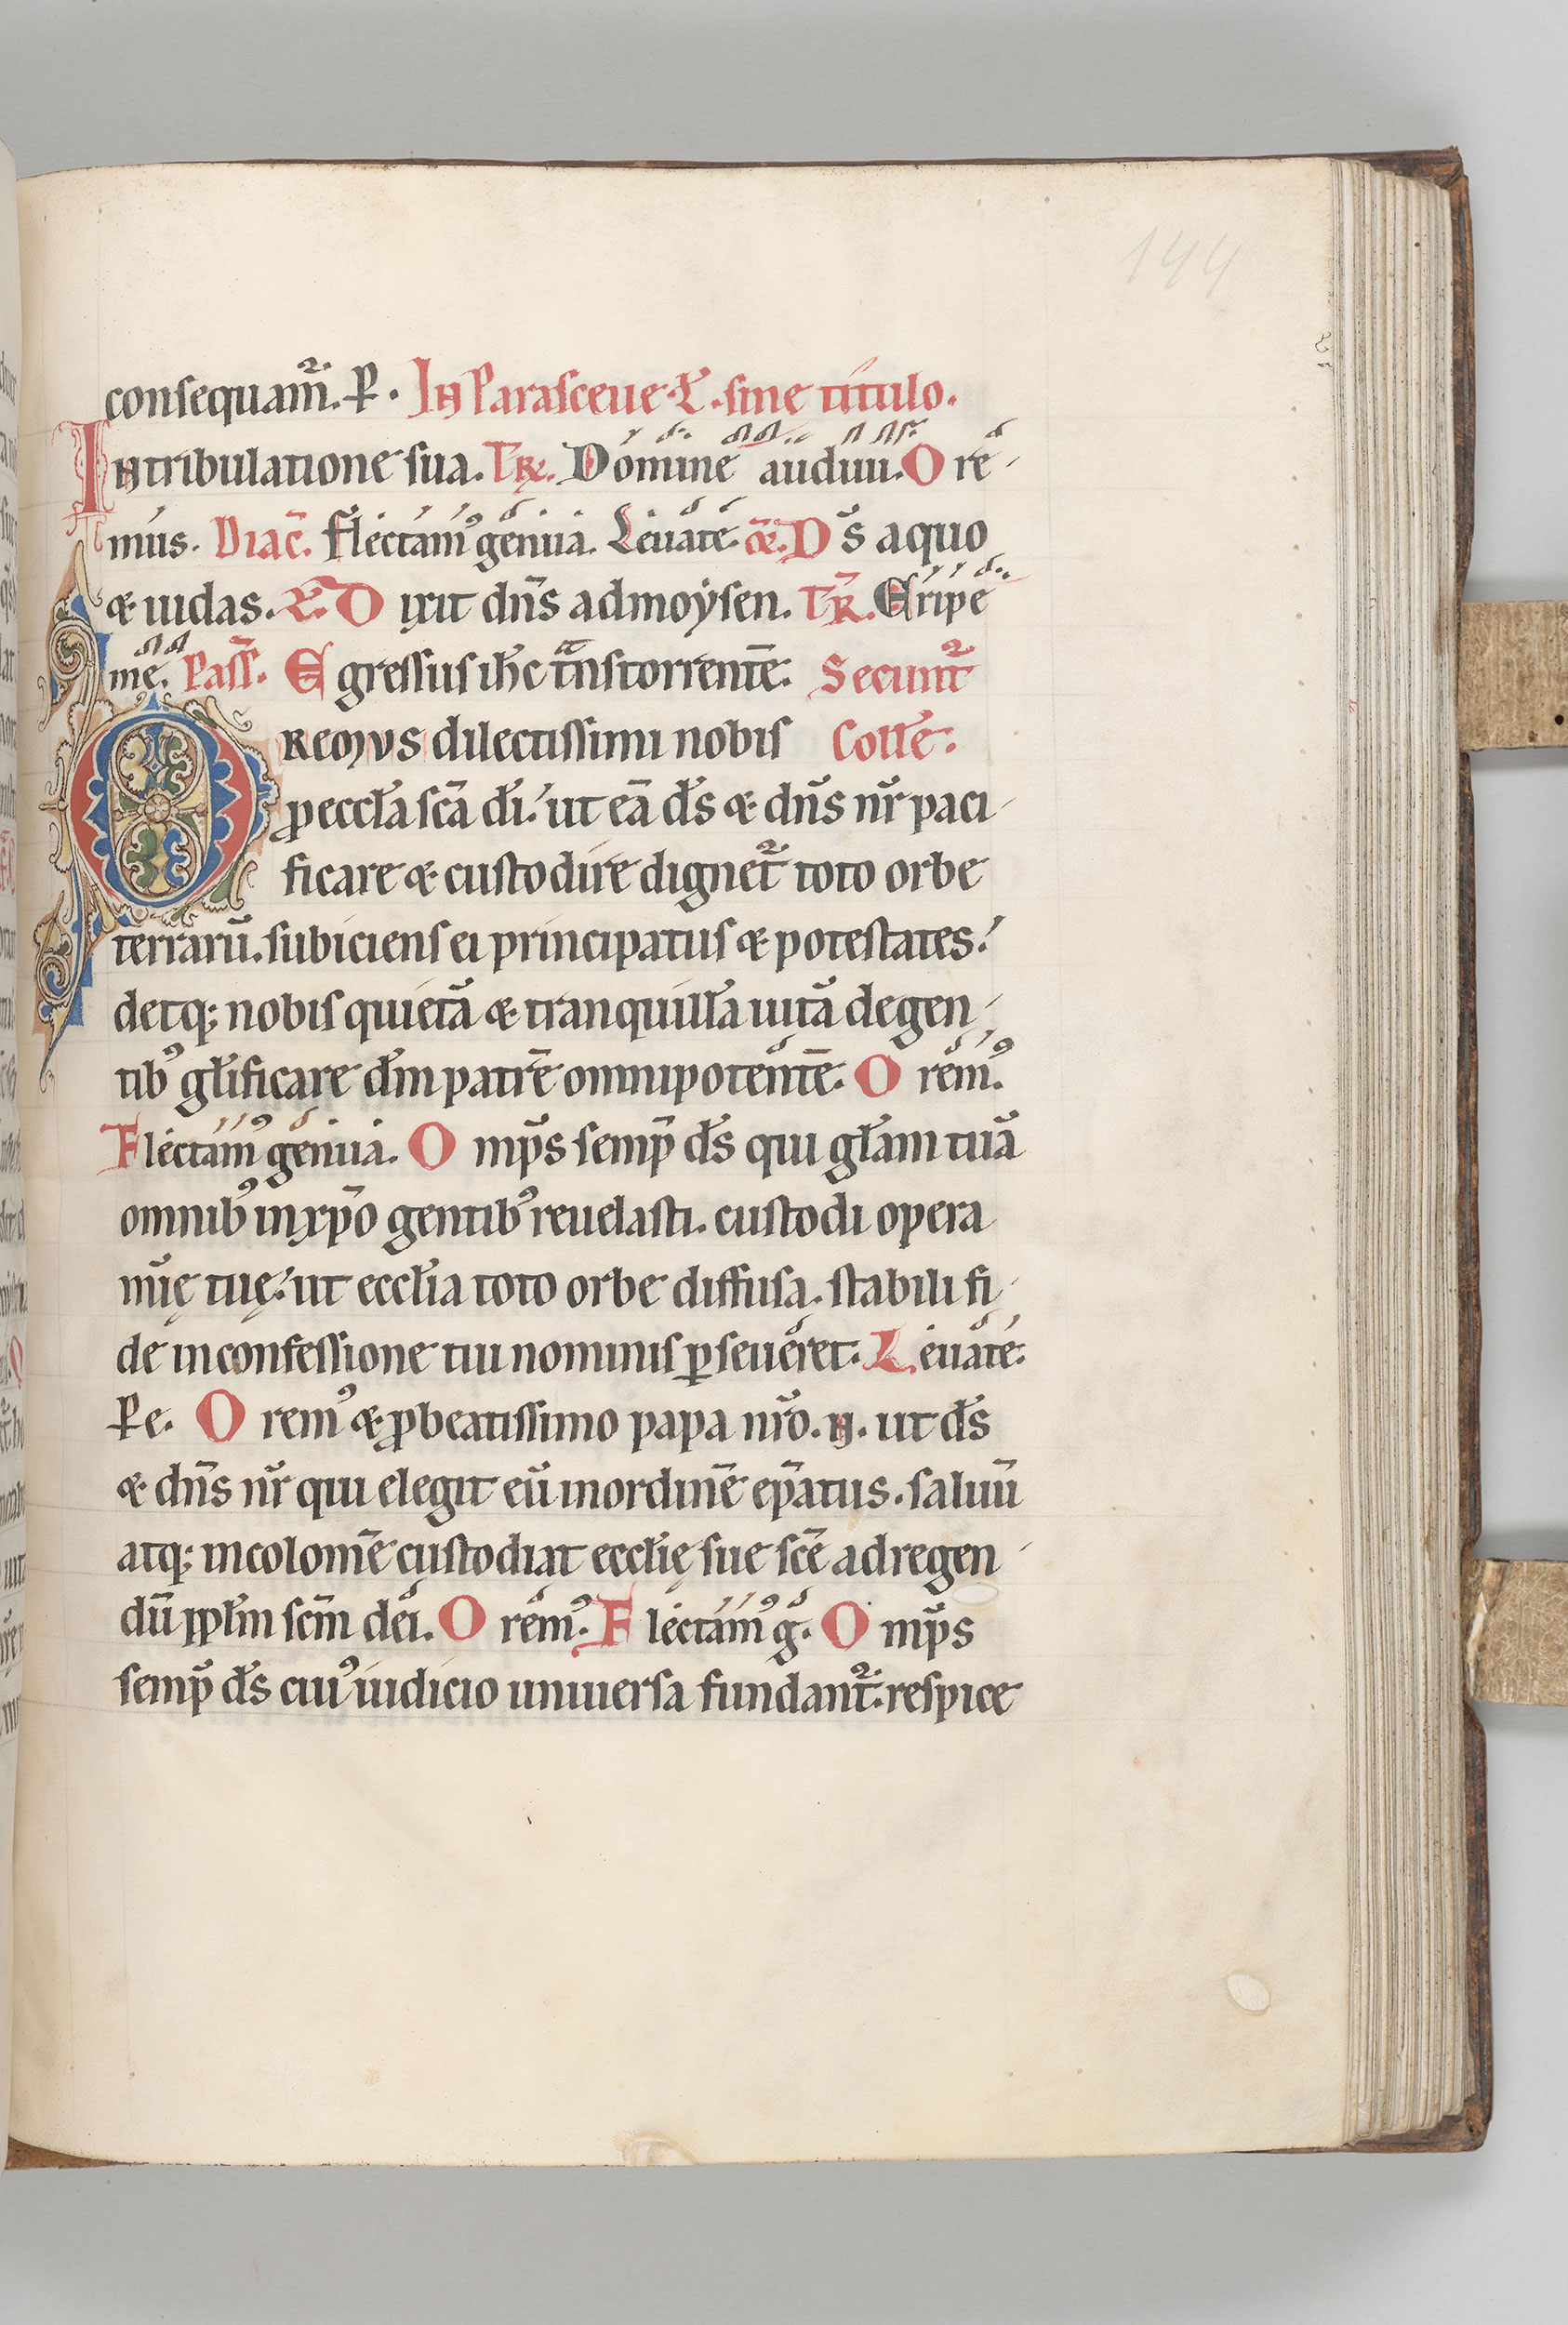 144
consequam̄᷑. P̲. In Parasceue. L̅. sine titulo.
In tribulatione sua. Tꝶ. Domine audiui. O re-
mus. Diac̄. Flectamꝰ genua. Leuate. or̄. D s̄ a quo
& iudas. L̅. D ixit dn̄s ad moẏsen. Tꝶ. Eripe
me. Pass̄. E gressus ih̄c t̄ns torrentē. Secunt᷑
OREMVS dilectissimi nobis Coll̄e.
ꝓ eccl̄a sc̄a dī. ut eā ds̄ & dn̄s nr̄ paci-
ficare & custodire dignet᷑ toto orbe
terrarū. subiciens ei principatus & potestates.
detq; nobis quietā & tranquillā uitā degen-
tibꝰ gl̄ificare dm̄ patrē omnipotentē. O remꝰ.
Flectamꝰ genua. O mp̄s semp̄ ds̄ qui gl̄am tuā
omnibꝰ in xp̄o gentibꝰ reuelasti. custodi opera
mīę tuę. ut eccl̄ia toto orbe diffusa. stabili fi-
de in confessione tui nominis ꝑseueret. Leuate.
P̲ e. O remꝰ & ꝓ beatissimo papa nr̄o. N. ut ds̄
& dn̄s nr̄ qui elegit eū in ordinē ep̄atus. saluū
atq; incolomē custodiat eccl̄ię sue sc̄e ad regen-
dū ppl̄m sc̄m dei. O remꝰ. F lectamꝰ g̅. O mp̄s
semp̄ ds̄ cuiꝰ iudicio uniuersa fundant᷑. respice